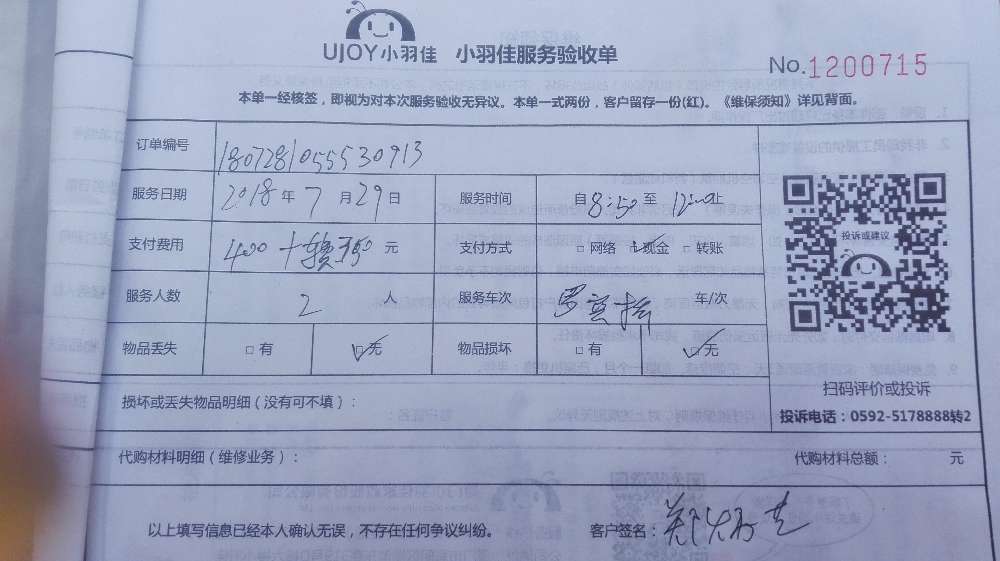 UJOY小羽佳 小羽佳服务验收单
No.1200715
本单一经核签，即视为对本次服务验收无异议。本单一式两份，客户留存一份(红)。《维保须知》详见背面。
订单编号 180728105553 0913
服务日期 2018年7月29日 服务时间 自8:50至12:00止
支付费用 400+ 元 支付方式 □网络 ☑现金 □转账
投诉或建议
服务人数 2人 服务车次 车/次
物品丢失 □有 ☑无 物品损坏 □有 ☑无
扫码评价或投诉
损坏或丢失物品明细（没有可不填）：
投诉电话：0592-5178888转2
代购材料明细（维修业务）： 代购材料总额： 元
以上填写信息已经本人确认无误，不存在任何争议纠纷。 客户签名：